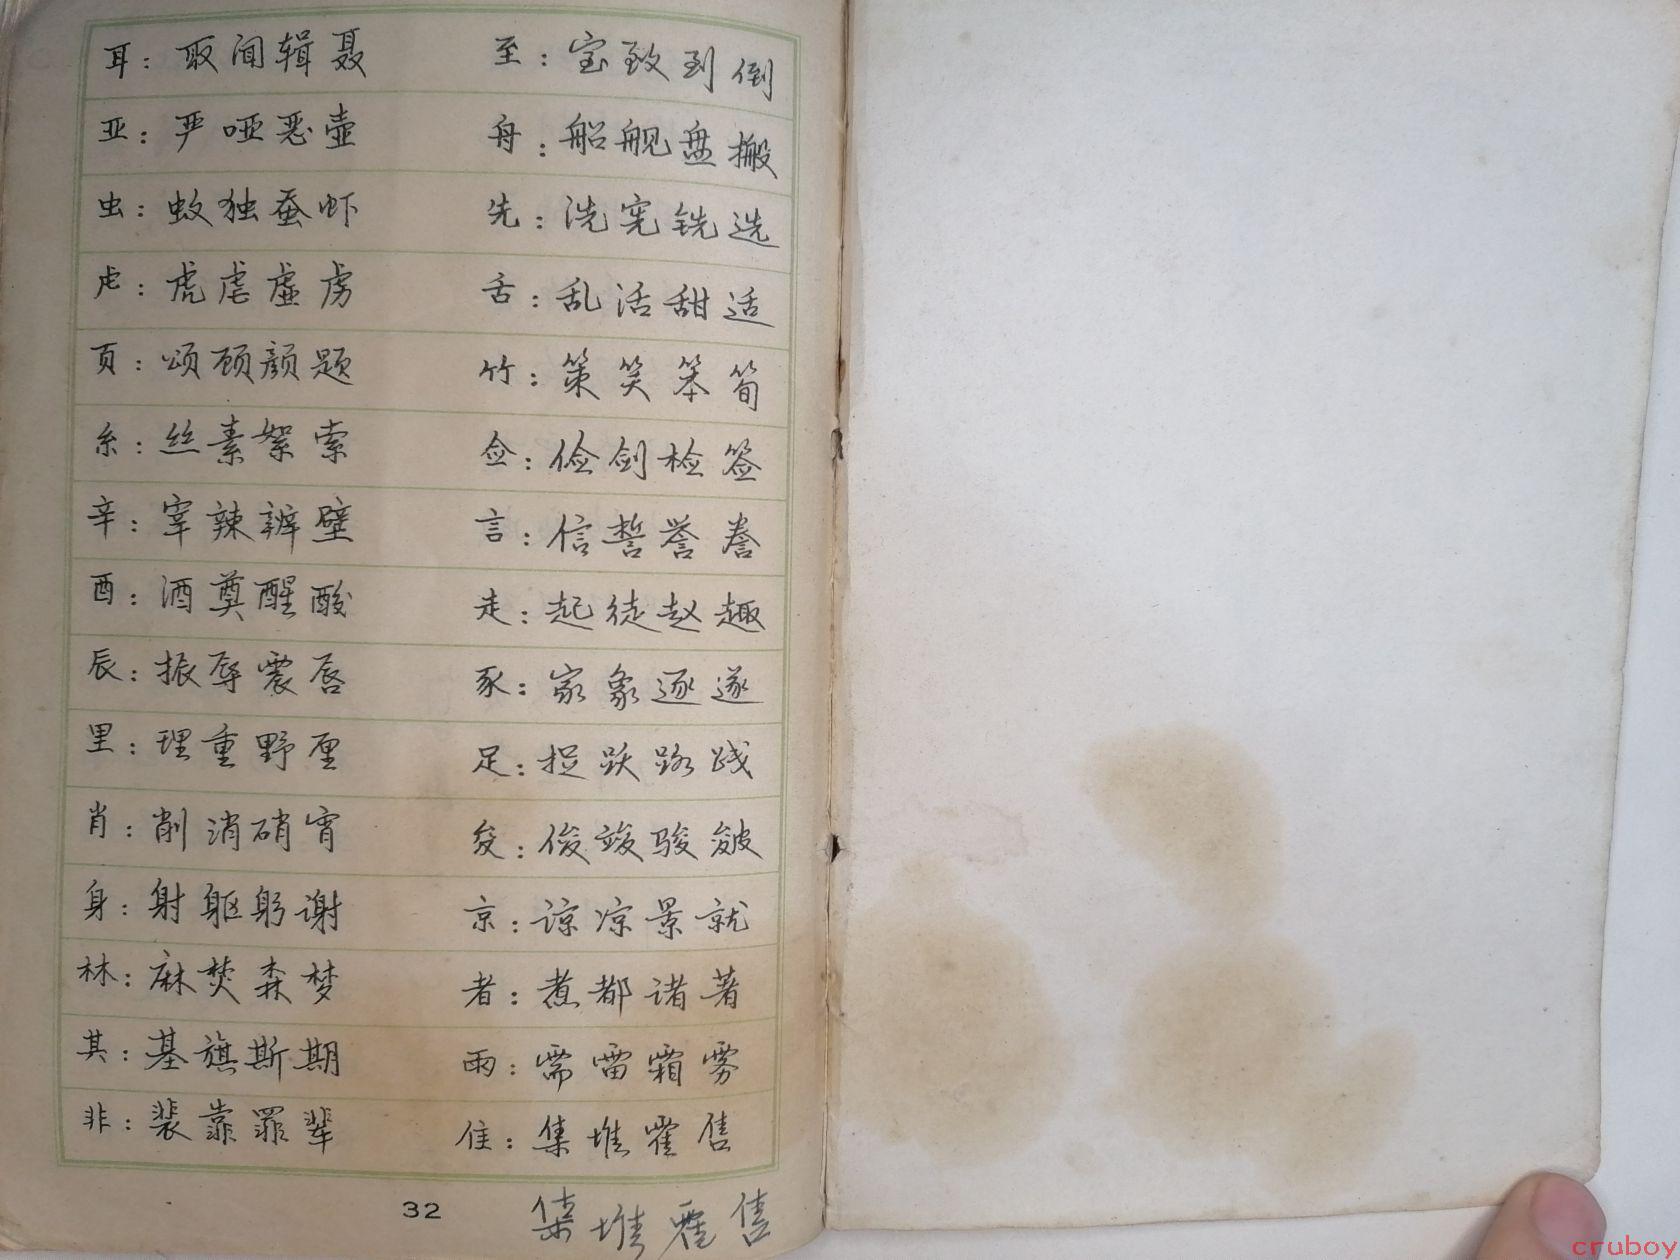 耳：取闻辑聂 至：室致到倒
亚：严哑恶壶 舟：船舰盘搬
虫：蚊独蚕虾 先：洗宪铣选
虍：虎虐虚虏 舌：乱活甜适
页：颂顾颜题 竹：策笑笨筍
糸：丝素絮索 佥：俭剑检签
辛：宰辣辨壁 言：信誓誉誊
酉：酒奠醒酸 走：起徒赵趣
辰：振辱震唇 豕：家象逐遂
里：理重野厘 足：捉跃路践
肖：削消硝宵 夋：俊竣骏皴
身：射躯躬谢 京：谅凉景就
林：麻焚森梦 者：煮都诸著
其：基旗斯期 雨：需雷霜雾
非：裴靠罪辈 隹：集堆霍售
32
集堆霍售
cruboy